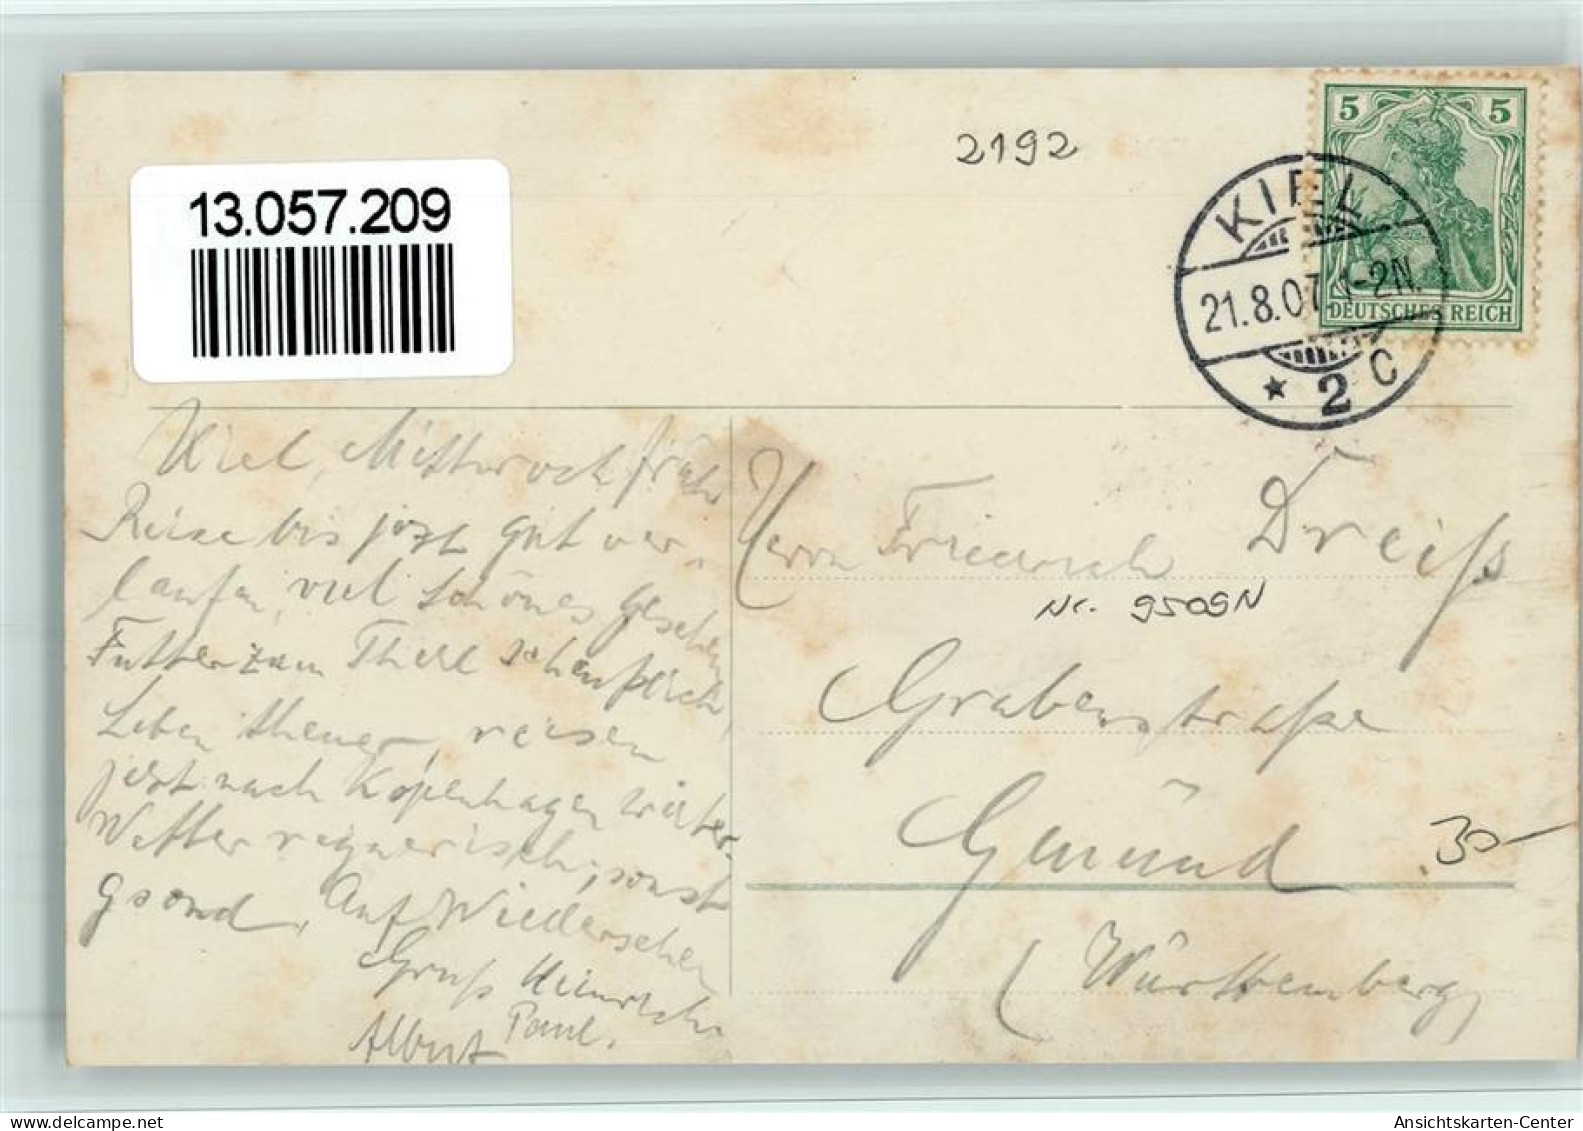 13.057.209
2192
5 5
DEUTSCHES REICH
KIEL
21.8.07. 1-2N.
* 2 C
Kiel, Mittwoch früh
Reise bis jezt gut ver-
laufen, viel Schönes gesehen
Futter zum Theil scheußlich,
Leben theuer, reisen
jetzt nach Kopenhagen weiter.
Wetter regnerisch, sonst
gsond. Auf Wiedersehen
Gruß Heinrich
Paul.
Albert
Herrn Friedrich Dreiß
Nr. 9509N
Grabenstraße
Gmünd
.30-
(Württemberg)
www.delcampe.net
Ansichtskarten-Center